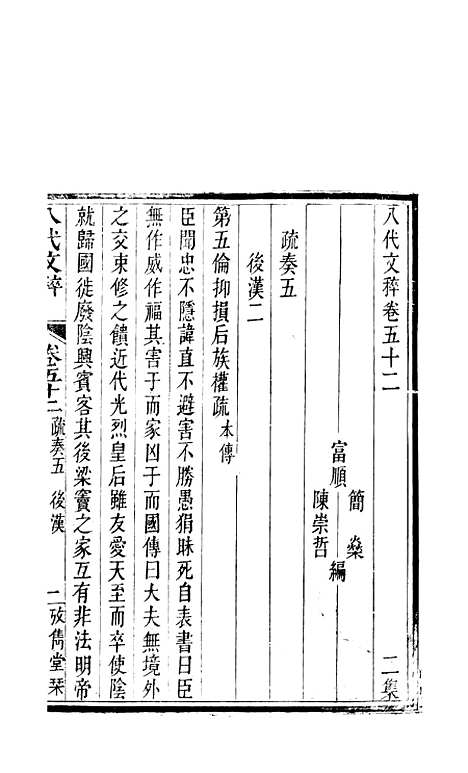 八代文稡卷五十二 二集
簡燊
富順 編
陳崇哲
疏奏五
後漢二
第五倫抑損后族權疏本傳
臣聞忠不隱諱直不避害不勝愚狷昧死自表書曰臣
無作威作福其害于而家凶于而國傳曰大夫無境外
之交束修之饋近代光烈皇后雖友愛天至而卒使陰
就歸國徙廢陰興賓客其後梁竇之家互有非法明帝
八代文稡 卷五十二 疏奏五 後漢 二 攷雋堂栞